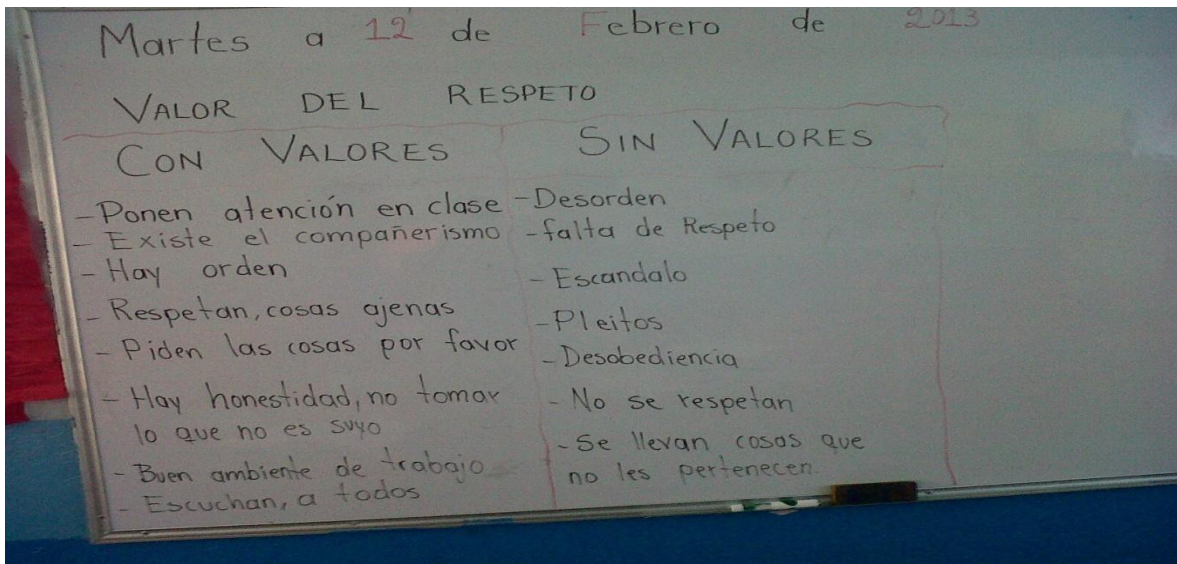 Martes a 12 de Febrero de 2013
VALOR DEL RESPETO
CON VALORES
- Ponen atención en clase
- Existe el compañerismo
- Hay orden
- Respetan, cosas ajenas
- Piden las cosas por favor
- Hay honestidad, no tomar
lo que no es suyo
- Buen ambiente de trabajo
- Escuchan, a todos
SIN VALORES
- Desorden
- falta de Respeto
- Escandalo
- Pleitos
- Desobediencia
- No se respetan
- Se llevan cosas que
no les pertenecen.